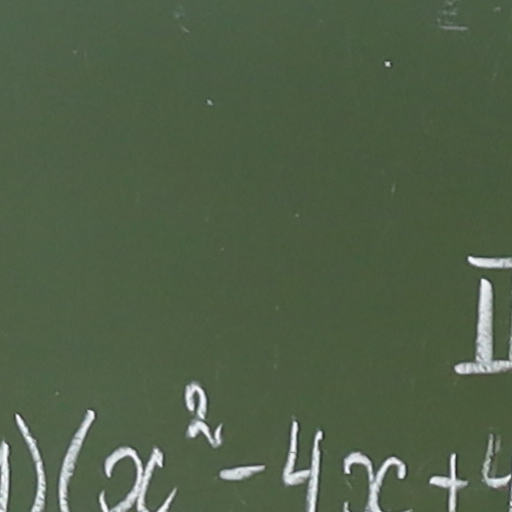 II
)(x²-4x+4